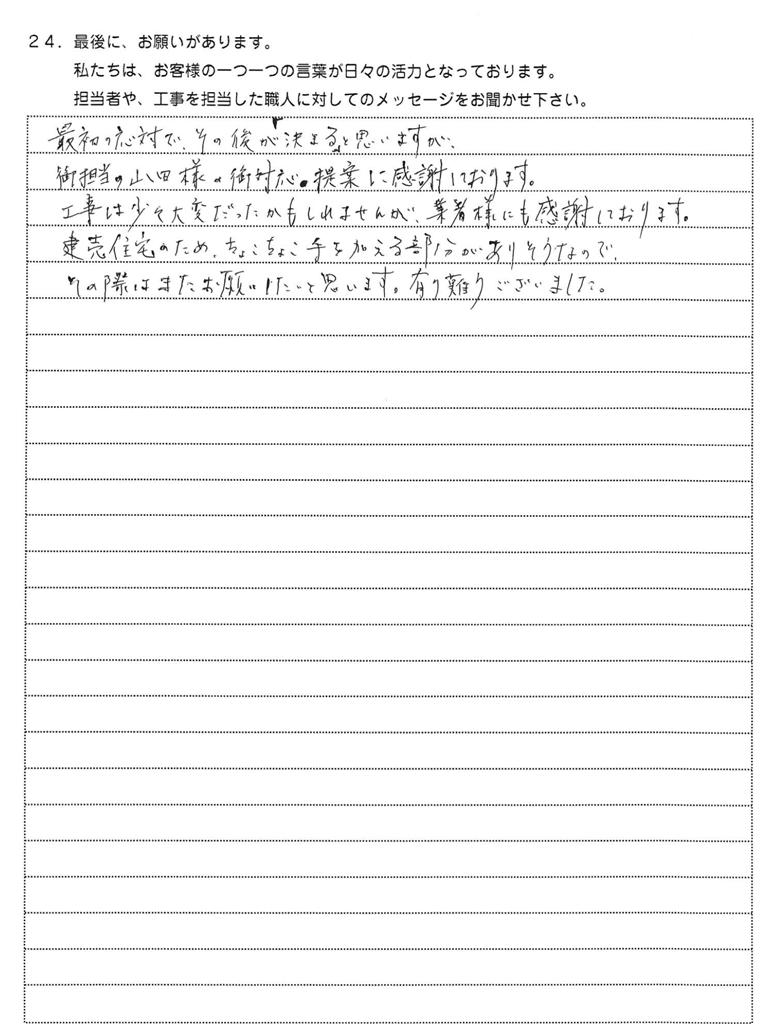 24．最後に、お願いがあります。
私たちは、お客様の一つ一つの言葉が日々の活力となっております。
担当者や、工事を担当した職人に対してのメッセージをお聞かせ下さい。
最初の応対で、その後が決まると思いますが、
御担当の山田様の御対応・提案に感謝しております。
工事は少々大変だったかもしれませんが、業者様にも感謝しております。
建売住宅のため、ちょこちょこ手を加える部分がありそうなので、
その際はまたお願いしたいと思います。有り難うございました。